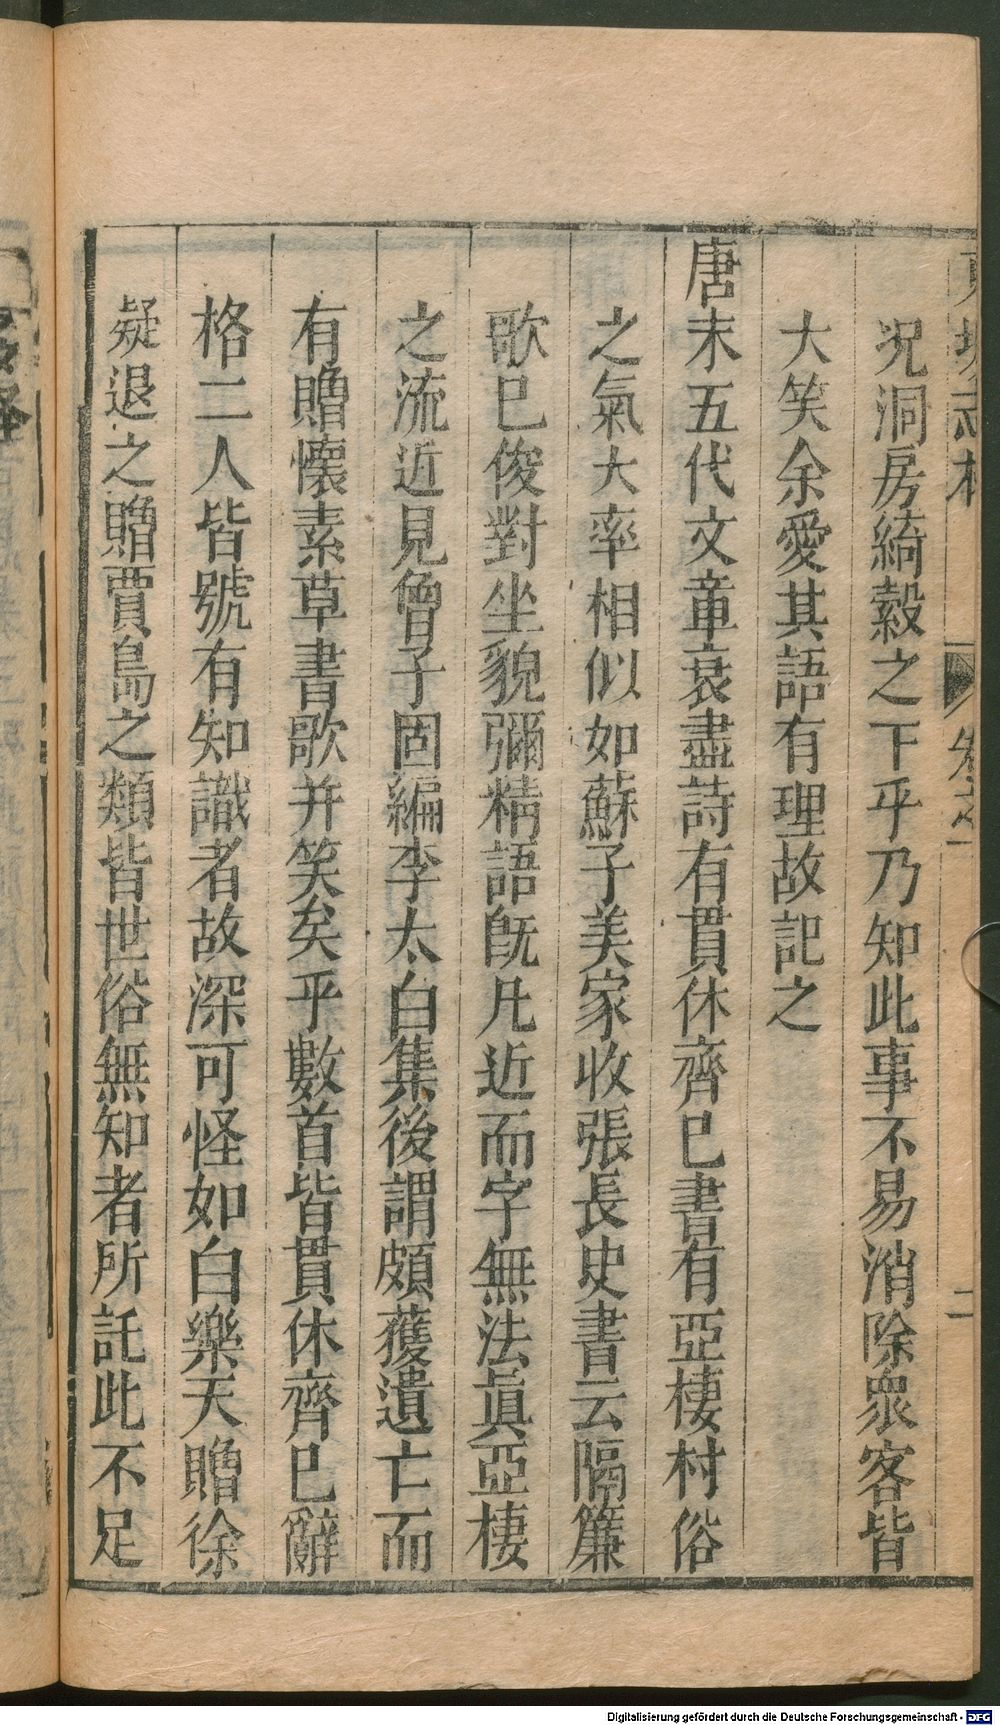 况洞房綺縠之下乎乃知此事不易消除衆客皆
大笑余愛其語有理故記之
唐末五代文章衰盡詩有貫休齊巳書有亞棲村俗
之氣大率相似如蘇子美家收張長史書云隔簾
歌巳俊對坐貌彌精語旣凡近而字無法眞亞棲
之流近見曾子固編李太白集後謂頗獲遺亡而
有贈懷素草書歌并笑矣乎數首皆貫休齊巳辭
格二人皆號有知識者故深可怪如白樂天贈徐
疑退之贈賈島之類皆世俗無知者所託此不足
Digitalisierung gefördert durch die Deutsche Forschungsgemeinschaft - DFG